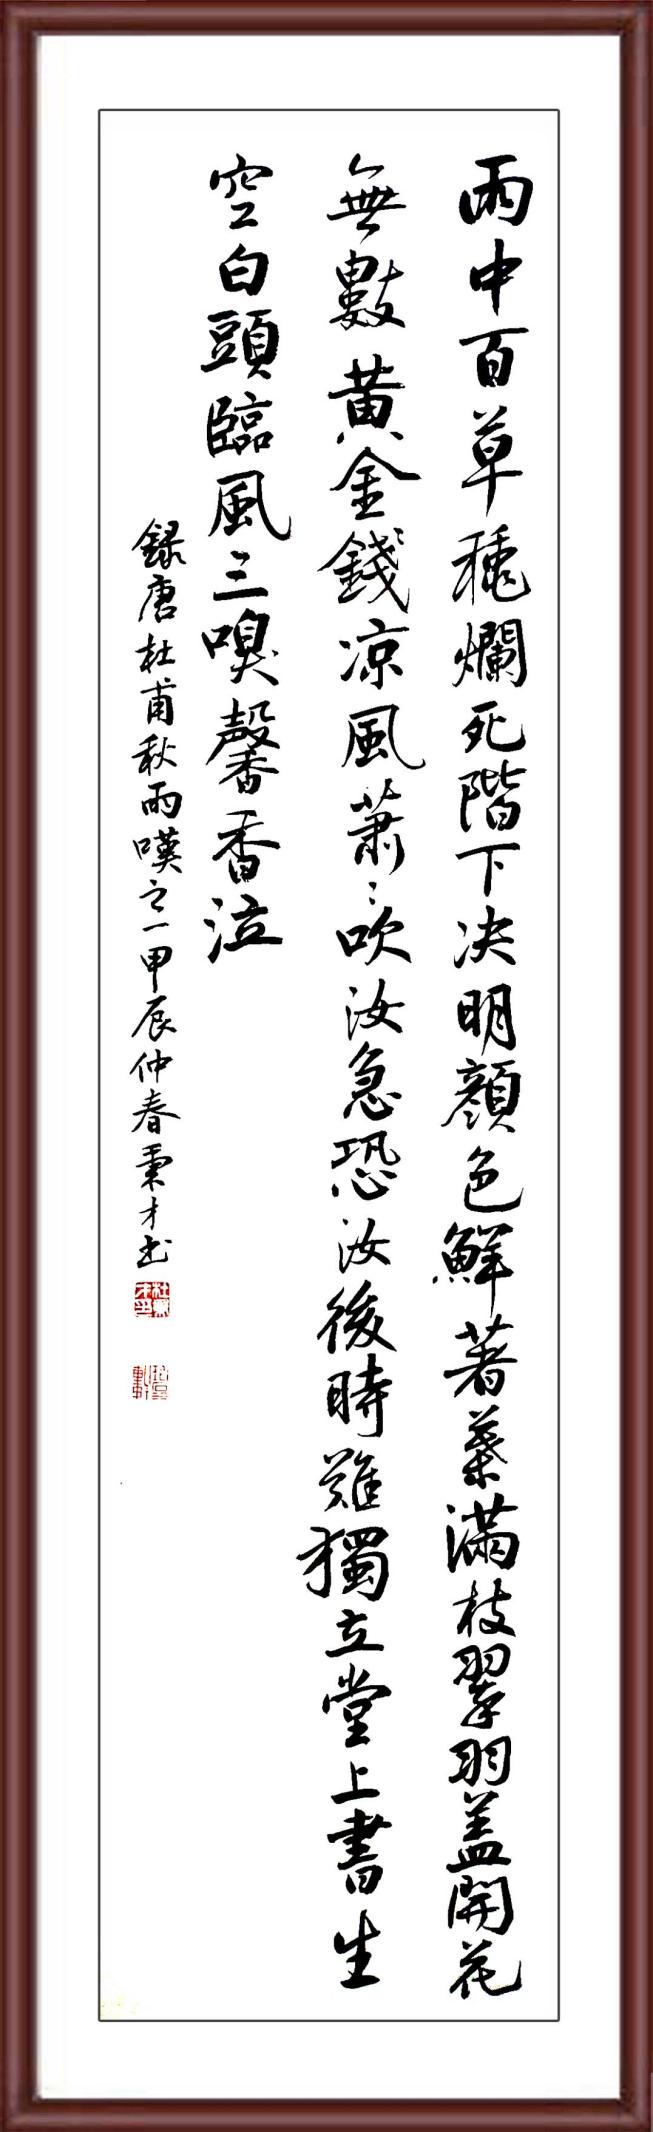 雨中百草穐爛死階下决明顏色鮮著葉滿枝翠羽盖開花
無數黃金錢凉風蕭〻吹汝急恐汝後時難獨立堂上書生
空白頭臨風三嗅馨香泣
録唐杜甫秋雨嘆之一甲辰仲春秉才书
杜秉才印